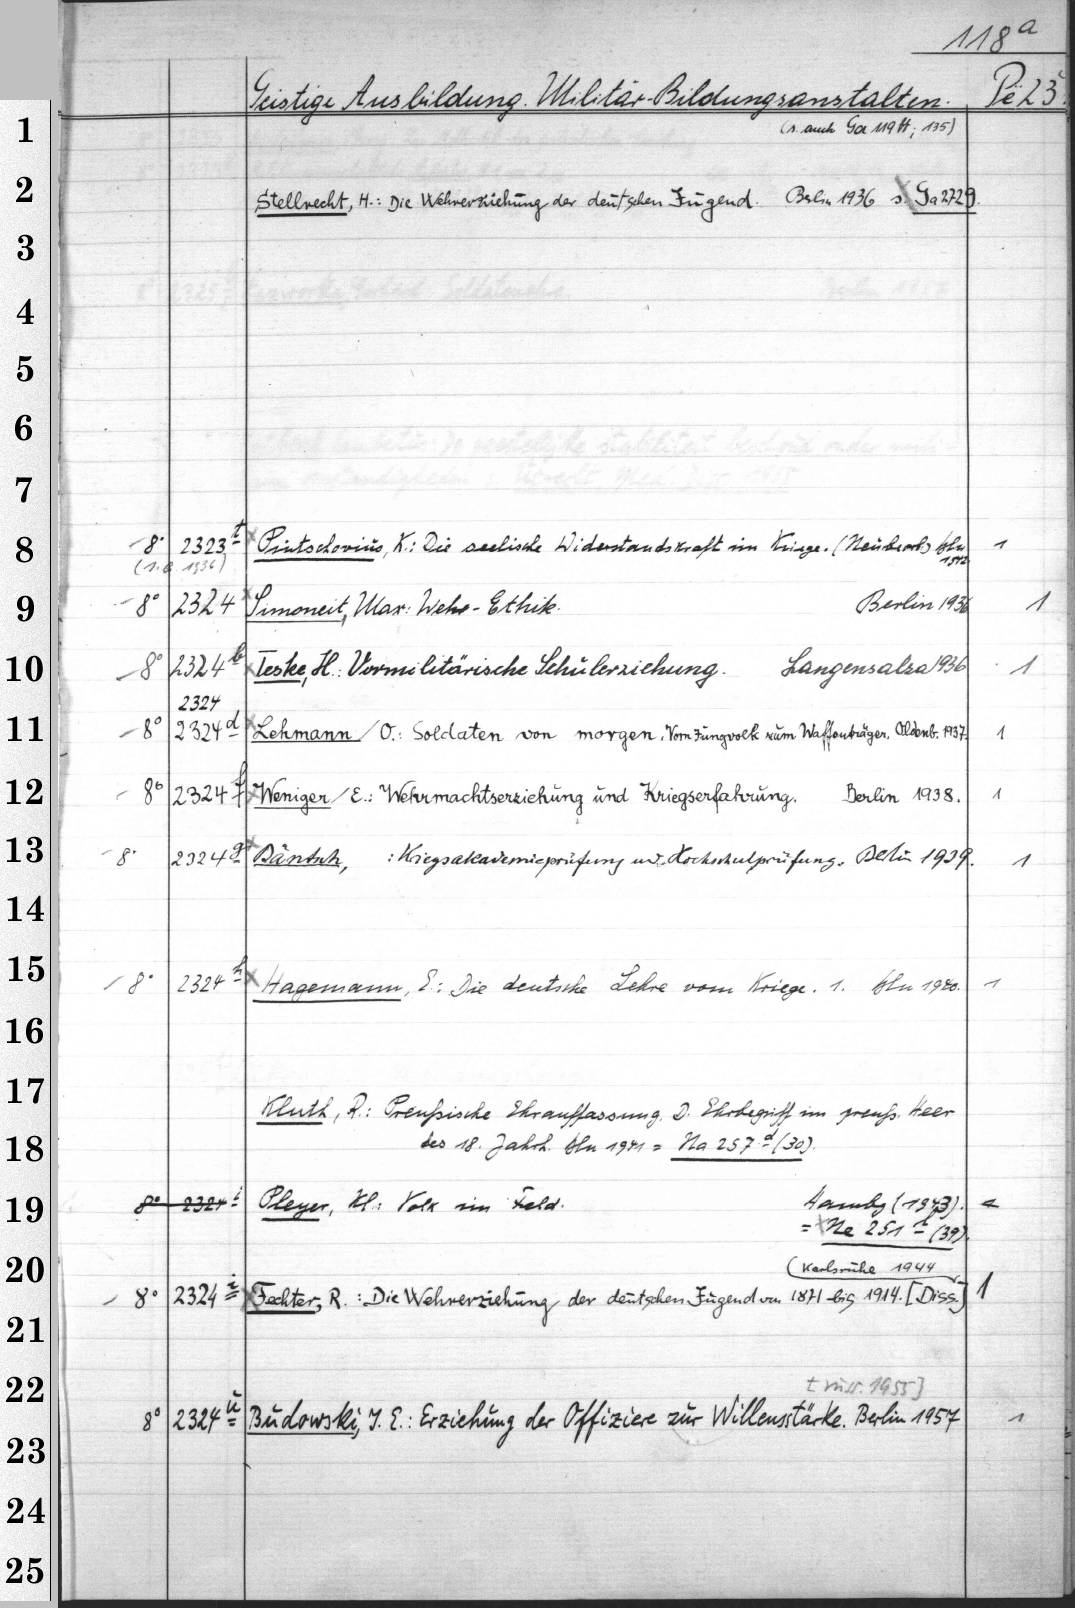 118a
Geistige Ausbildung. Militär-Bildungsanstalten. Pe 23.
1 (s. auch Ga 119 ff; 135)
2 Stellrecht, H.: Die Wehrerziehung der deutschen Jugend. Berlin 1936 s. Ga 2729.
3
4
5
6
7
8 8° 2323 t Pintschovius, K.: Die seelische Widerstandskraft im Kriege. (Neubearb) Bln 1942 1
(1. 1936)
9 8° 2324 Simoneit, Max: Wehr-Ethik. Berlin 1936 1
10 8° 2324 b Teske, H.: Vormilitärische Schülerziehung. Langensalza 1936 1
2324
11 8° 2324 d Lehmann, O.: Soldaten von morgen. Vom Jungvolk zum Waffenträger. Oldenb. 1937. 1
12 8° 2324 f Weniger, E.: Wehrmachtserziehung und Kriegserfahrung. Berlin 1938. 1
13 8° 2324 g Bäntsch, : Kriegsakademieprüfung und Hochschulprüfung. Berlin 1939. 1
14
15 8° 2324 h Hagemann, E.: Die deutsche Lehre vom Kriege. 1. Bln 1940. 1
16
17 Kluth, R.: Preußische Ehrauffassung. D. Ehrbegriff im preuß. Heer
18 des 18. Jahrh. Bln 1941 = Na 257 d (30).
19 8° 2324 i Pleyer, Kl.: Volk im Feld. Hambg (1943).
= Ne 251 f (39).
20 (Karlsruhe 1944
8° 2324 i Fechter, R.: Die Wehrerziehung der deutschen Jugend von 1871 bis 1914. [Diss.] 1
21
22 [russ. 1955]
8° 2324 u Budowski, J. E.: Erziehung der Offiziere zur Willensstärke. Berlin 1957 1
23
24
25